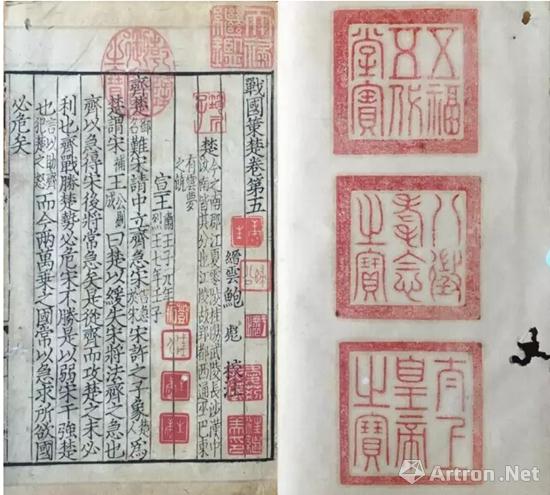 戰國策楚卷第五
縉雲鮑 彪 校注
楚 今之南郡江夏零陵桂陽武陵長沙漢中
汝南皆其分也江陵故郢都西通巫巴東
有雲夢
之饒
宣王
齊楚難宋請中立齊急宋宋許之子象為
楚謂宋王曰楚以緩失宋將法齊之急也
齊以急得宋後將常急矣是從齊而攻楚之未必
利也齊戰勝楚勢必危宋不勝是以弱宋干強楚
也而令兩萬乘之國常以急求所欲國
必危矣
天祿繼鑑
五福五代堂寶
八徵耄念之寶
太上皇帝之寶
Artron.Net